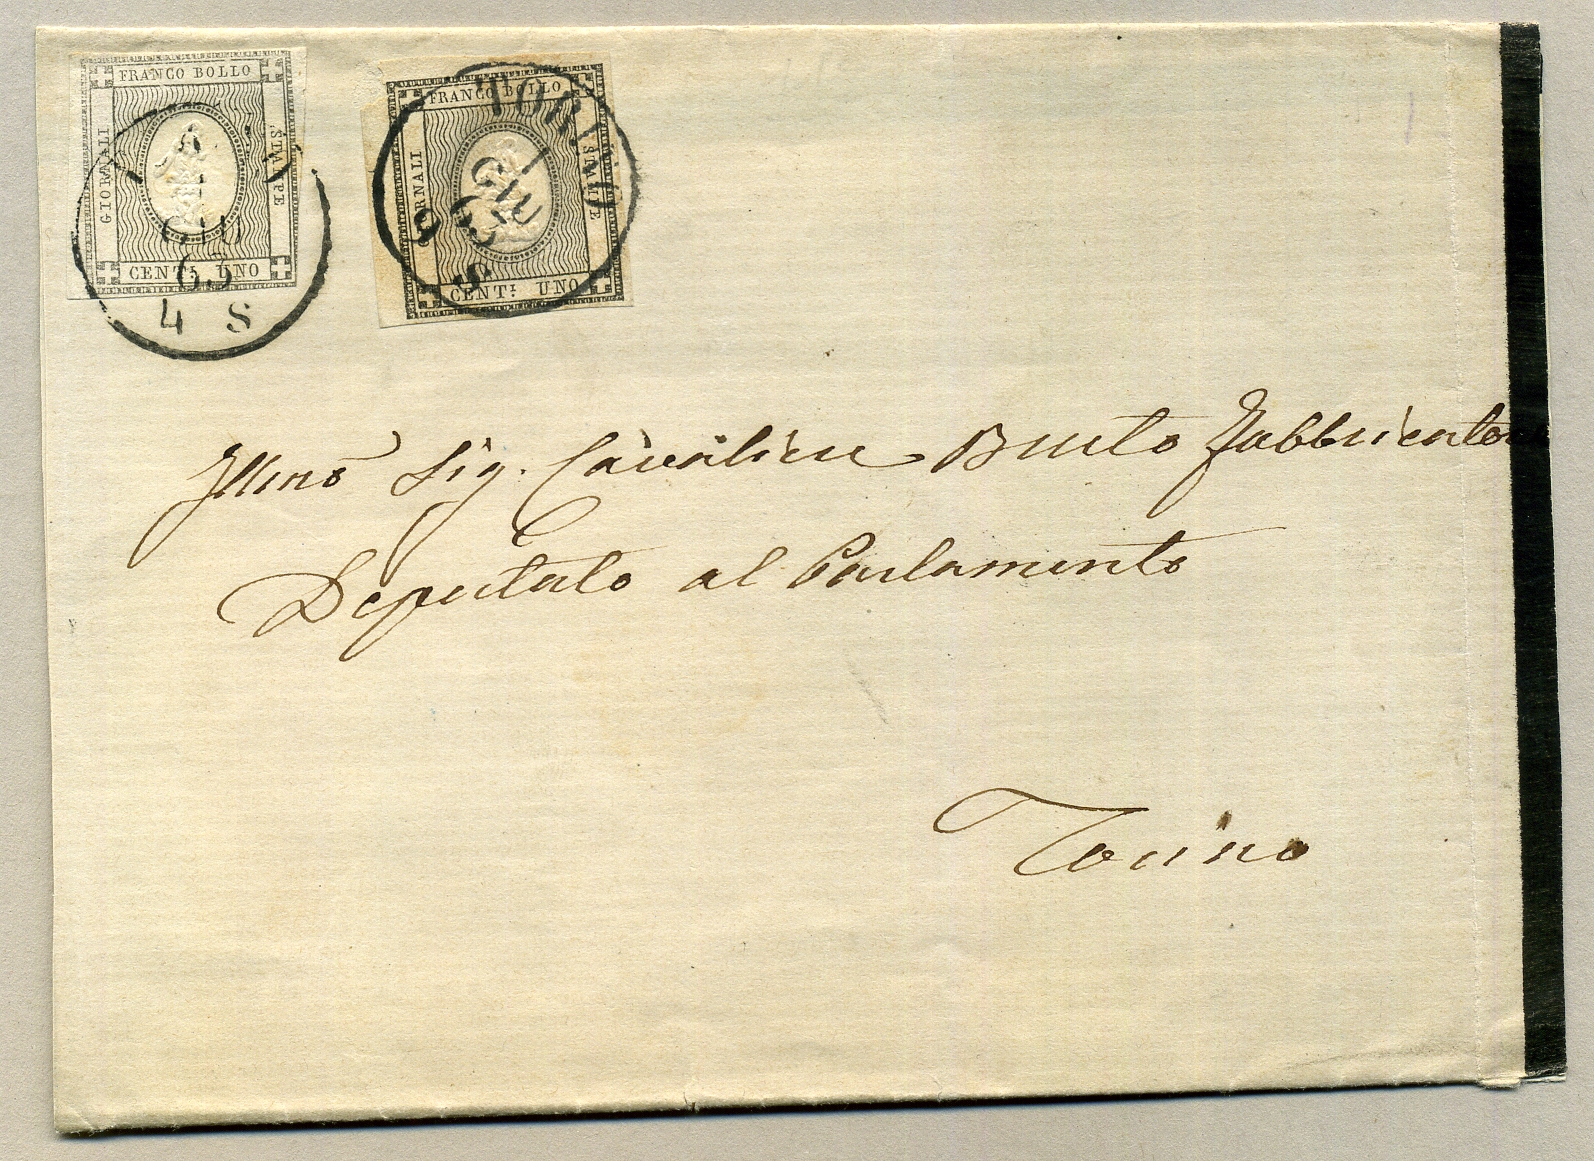 FRANCO BOLLO
GIORNALI
STAMPE
CENT: UNO
GIU
63
4 S
FRANCO BOLLO
STAMPE
CENT: UNO
TORINO
GIU
63
9 S
Illmo Sig. Cavaliere Fabbricatore
Deputato al Parlamento
Torino